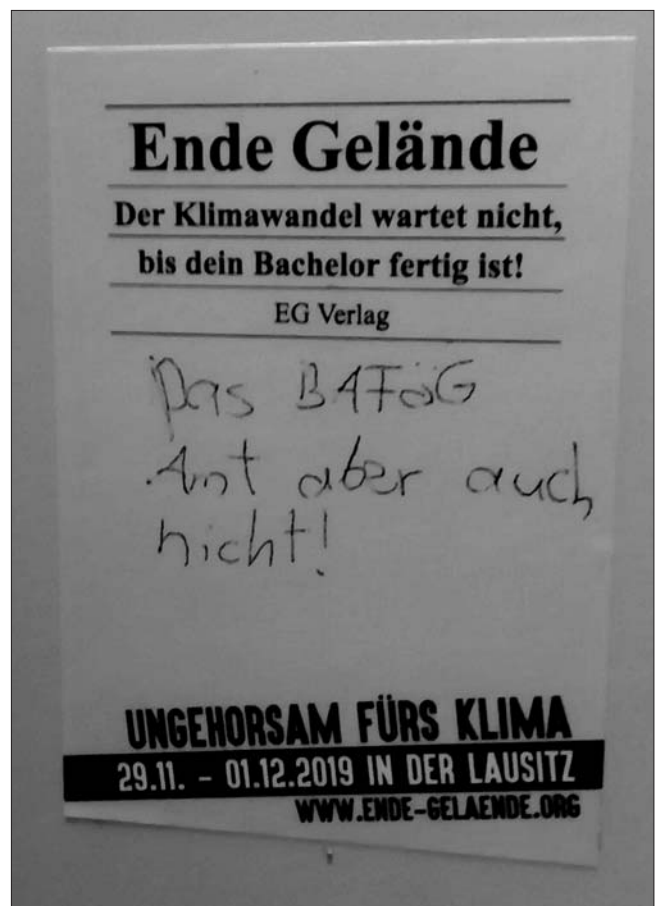 Ende Gelände
Der Klimawandel wartet nicht,
bis dein Bachelor fertig ist!
EG Verlag
Das BAFöG
Amt aber auch
nicht!
UNGEHORSAM FÜRS KLIMA
29.11. - 01.12.2019 IN DER LAUSITZ
WWW.ENDE-GELAENDE.ORG